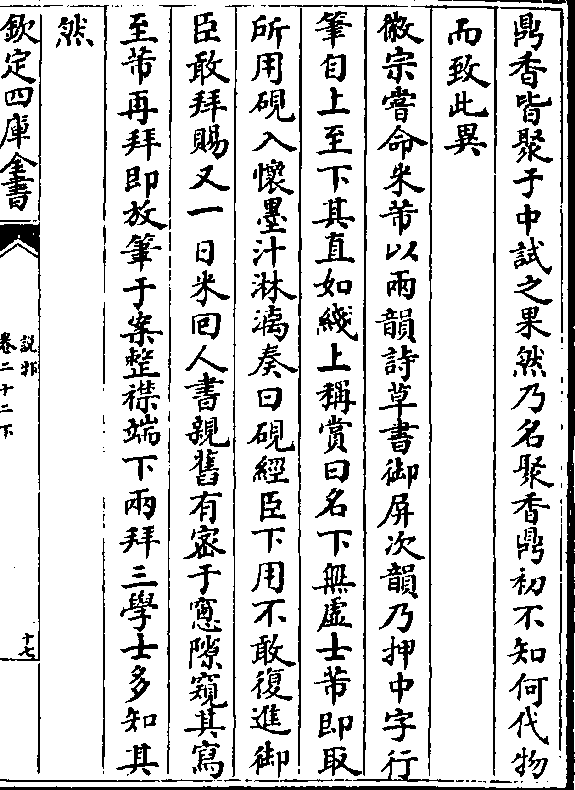 鼎香皆聚于中試之果然乃名聚香鼎初不知何代物
而致此異
徽宗嘗命米芾以兩韻詩草書御屏次韻乃押中字行
筆自上至下其直如綫上稱賞曰名下無虛士芾即取
所用硯入懷墨汁淋漓奏曰硯經臣下用不敢復進御
臣敢拜賜又一日米回人書親舊有密于窻隙窺其寫
至芾再拜即放筆于案整襟端下兩拜三學士多知其
然
欽定四庫全書
説郛
卷二十二下
十七